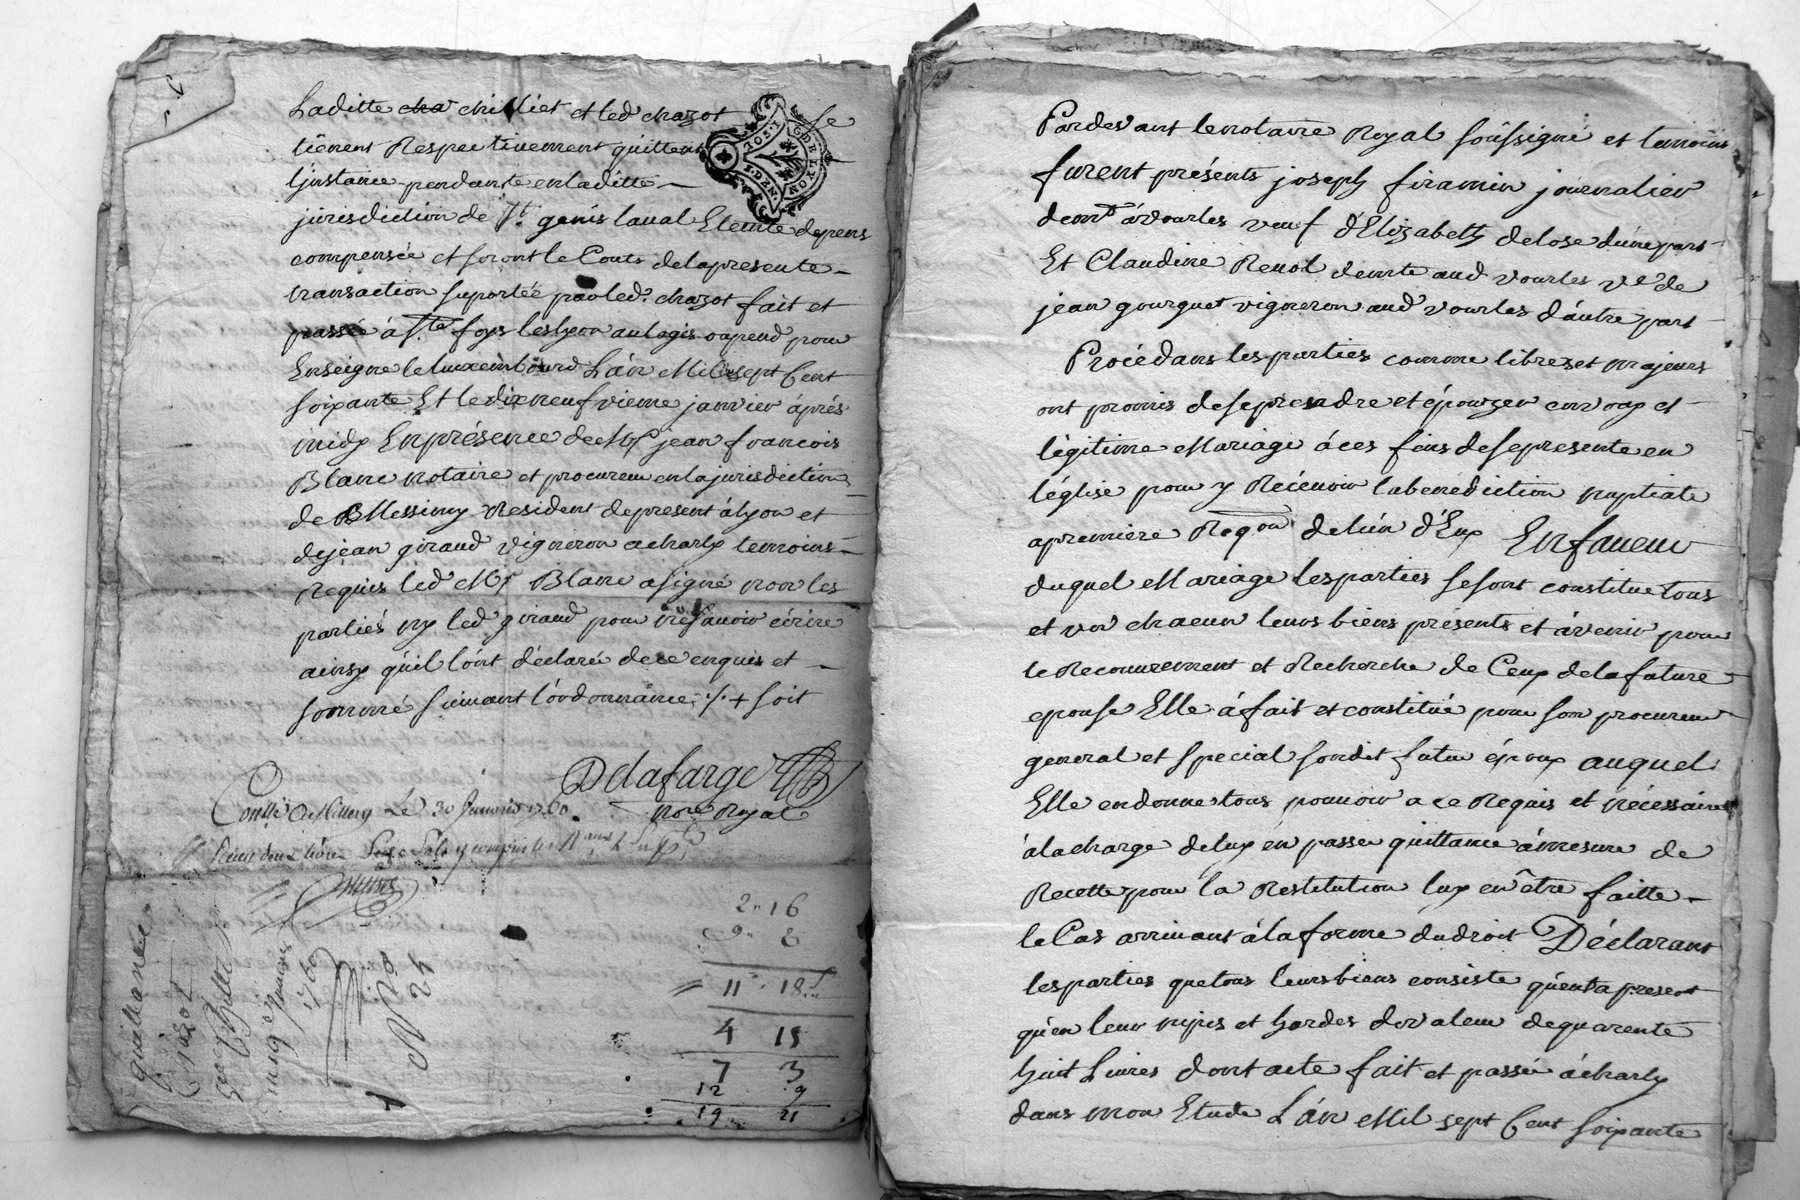 Laditte cha chilliet et led chazot se
tiénent Respectivement quittent
l'jnstance pendante en laditte
jurisdiction de St. genis laval Eteinte depens
compensée et seront le Couts de la presente
transaction suportée par led. chazot fait et
passée à Ste foys leslyon au logis ou pend pour
Enseigne le luxembourd L'an Mil sept Cent
soixante Et le dix neufvieme janvier áprés
midy En présence de Mr jean francois
Blanc notaire et procureur en la jurisdiction
de Messimy Resident de present á lyon et
de jean giraud vigneron a charly temoins
requis led Mr Blanc a signé non les
partiés ny led giraud pour ne sçavoir écrire
ainsy qu'il l'ont déclaré de ce enquis et
sommé suivant l'ordonnance ·/· + soit
Delafarge
nore Royal
Le 30 Janvier 1760.
2 16
9 2
11 18
4 15
7 3
12 9
19 21
quittance
Chazot
19e Janvier
1760
N 28
25
Pardevant le notaire Royal soussigné et temoins
furent présents joseph firamin journalier
demt. á vourles veuf d'Elizabeth delose d'une part
Et Claudine Renol demte aud vourles ve de
jean gourguet vigneron aud vourles d'áutre part
Procédans les parties comme libres et majeurs
ont promis de se prendre et épouzer en vray et
légitime Mariage á ces fins de se presenter en
l'église pour y Récevoir la benediction nuptiale
a premiere Reqon de l'ún d'Eux En faveur
duquel Mariage les parties se sont constitue tous
et un chacun leurs biens présents et ávenir pour
le Recouvrement et Recherche de Ceux de la future
epouse Elle á fait et constitué pour son procureur
general et special son dit futur époux auquel
Elle en donne tous pouvoir a ce Requis et nécessaires
á la charge de luy en passer quittance á mesure de
Recette pour la Restitution luy en être faitte
le Cas arrivant á la forme du droit Déclarant
les parties que tous leurs biens consiste qúent a present
qu'en leur nipes et hardes de valeur de quarente
huit Livres dont acte fait et passé á charly
dans mon Etude L'án Mil sept Cent soixante